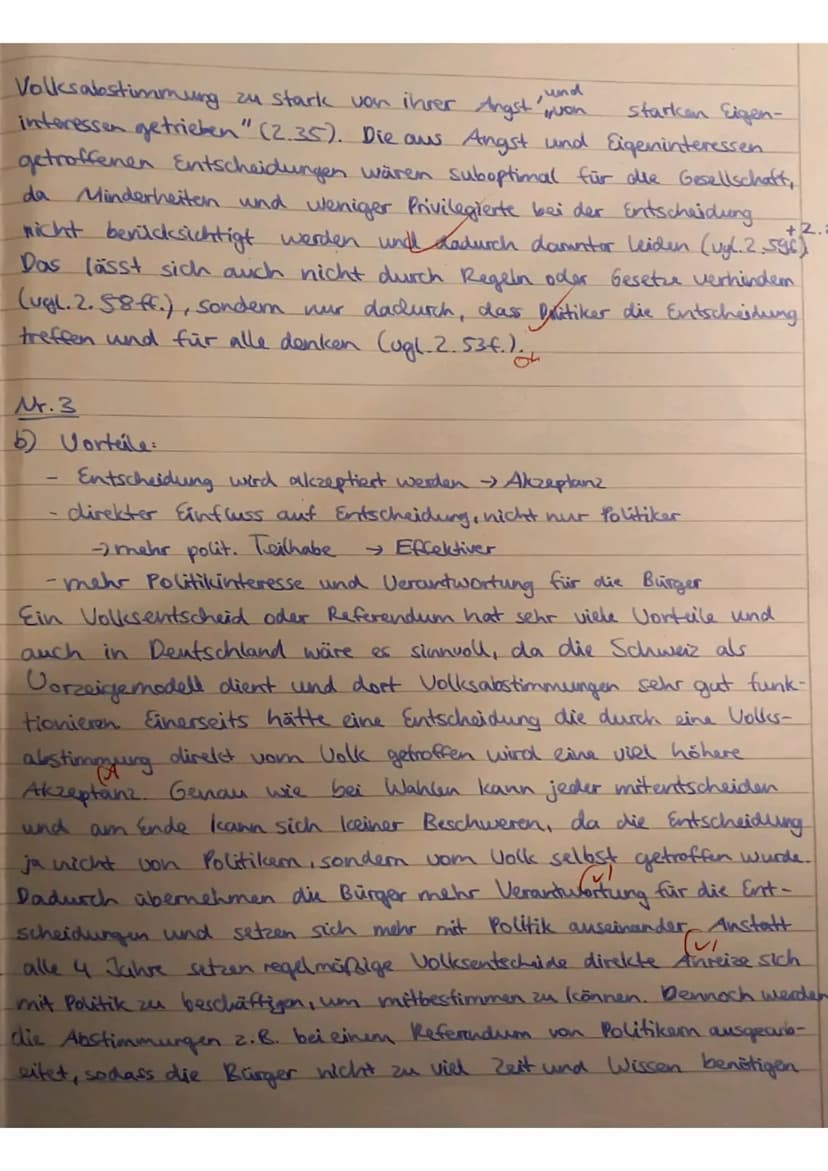 Volksabstimmung zu stark von ihrer Angst, und von starken Eigen-
interessen getrieben" (Z.35). Die aus Angst und Eigeninteressen
getroffenen Entscheidungen wären suboptimal für die Gesellschaft,
da Minderheiten und weniger Privilegierte bei der Entscheidung
nicht berücksichtigt werden und dadurch darunter leiden (vgl. Z.59f.)
Das lässt sich auch nicht durch Regeln oder Gesetze verhindern
(vgl. Z. 58ff.), sondern nur dadurch, das Politiker die Entscheidung
treffen und für alle denken (vgl. Z. 53f.).
Nr. 3
b) Vorteile:
- Entscheidung wird akzeptiert werden → Akzeptanz
- direkter Einfluss auf Entscheidung, nicht nur Politiker
→ mehr polit. Teilhabe → Effektiver
- mehr Politikinteresse und Verantwortung für die Bürger
Ein Volksentscheid oder Referendum hat sehr viele Vorteile und
auch in Deutschland wäre es sinnvoll, da die Schweiz als
Vorzeigemodell dient und dort Volksabstimmungen sehr gut funk-
tionieren. Einerseits hätte eine Entscheidung die durch eine Volks-
abstimmung direkt vom Volk getroffen wird eine viel höhere
Akzeptanz. Genau wie bei Wahlen kann jeder mitentscheiden
und am Ende kann sich keiner Beschweren, da die Entscheidung
ja nicht von Politikern, sondern vom Volk selbst getroffen wurde.
Dadurch übernehmen die Bürger mehr Verantwortung für die Ent-
scheidungen und setzen sich mehr mit Politik auseinander. Anstatt
alle 4 Jahre setzen regelmäßige Volksentscheide direkte Anreize sich
mit Politik zu beschäftigen, um mitbestimmen zu können. Dennoch werden
die Abstimmungen z.B. bei einem Referendum von Politikern ausgearb-
eitet, sodass die Bürger nicht zu viel Zeit und Wissen benötigen